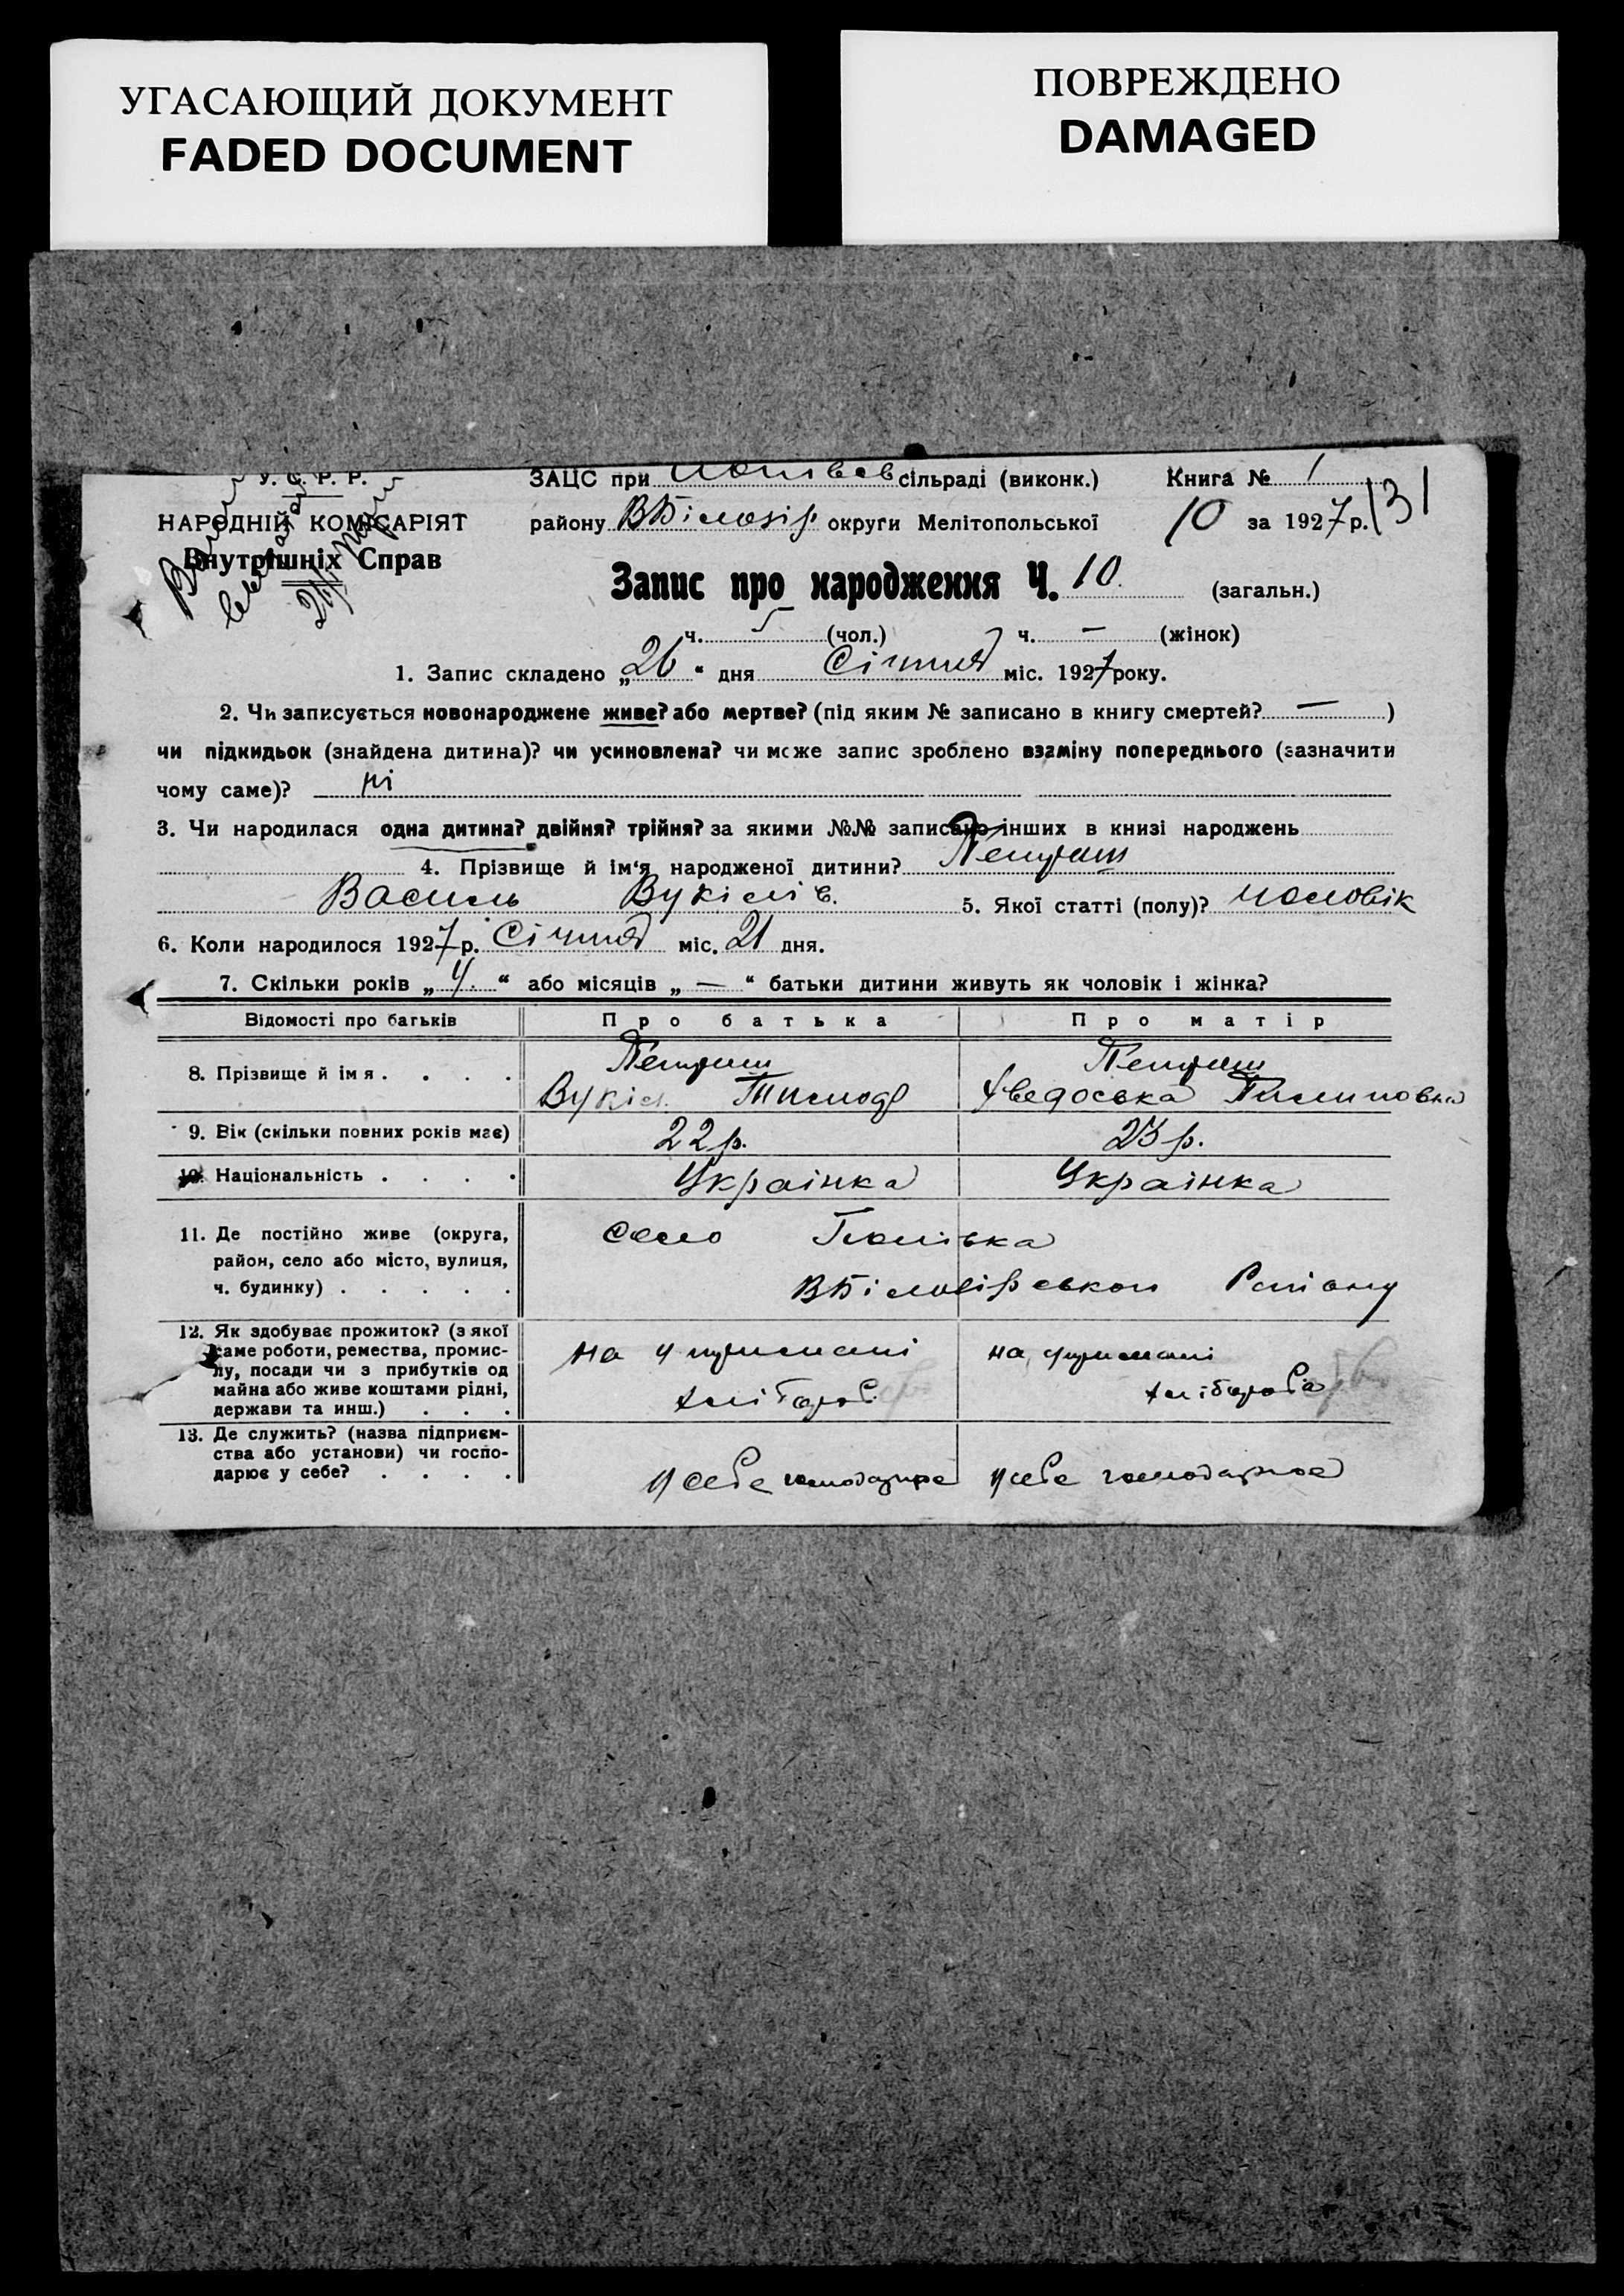 УГАСАЮЩИЙ ДОКУМЕНТ
FADED DOCUMENT
ПОВРЕЖДЕНО
DAMAGED
У. С. Р. Р.
НАРОДНІЙ КОМІСАРІЯТ
Внутрішніх Справ
ЗАЦС при сільраді (виконк.) Книга № 1
району ВБілозір. округи Мелітопольської 10 за 1927 р. 131
Запис про народження Ч. 10 (загальн.)
ч. 5 (чол.) ч. — (жінок)
1. Запис складено „26“ дня Січня міс. 1927 року.
2. Чи записується новонароджене живе? або мертве? (під яким № записано в книгу смертей? — )
чи підкидьок (знайдена дитина)? чи усиновлена? чи може запис зроблено взаміну попереднього (зазначити
чому саме)? ні
3. Чи народилася одна дитина? двійня? трійня? за якими №№ записано інших в книзі народжень
4. Прізвище й ім‘я народженої дитини? Петраш
Василь Вукілів. 5. Якої статті (полу)? чоловік
6. Коли народилося 1927 р. Січня міс. 21 дня.
7. Скільки років „4.“ або місяців „—“ батьки дитини живуть як чоловік і жінка?
Відомості про батьків Про батька Про матір
8. Прізвище й імя . . . . Петраш Петраш
Вукіл Тимоф
9. Вік (скільки повних років має) 22 р. 23 р.
10. Національність . . . . Українка Українка
11. Де постійно живе (округа, село
район, село або місто, вулиця,
ч. будинку) . . . . . ВБілозірськои Раіону
12. Як здобуває прожиток? (з якої
саме роботи, ремества, промис- на утримані на утримані
лу, посади чи з прибутків од
майна або живе коштами рідні, хліборо хлібороба
держави та инш.) . . .
13. Де служить? (назва підприєм-
ства або установи) чи госпо-
дарює у себе? . . . . у себе господарює у себе господарює